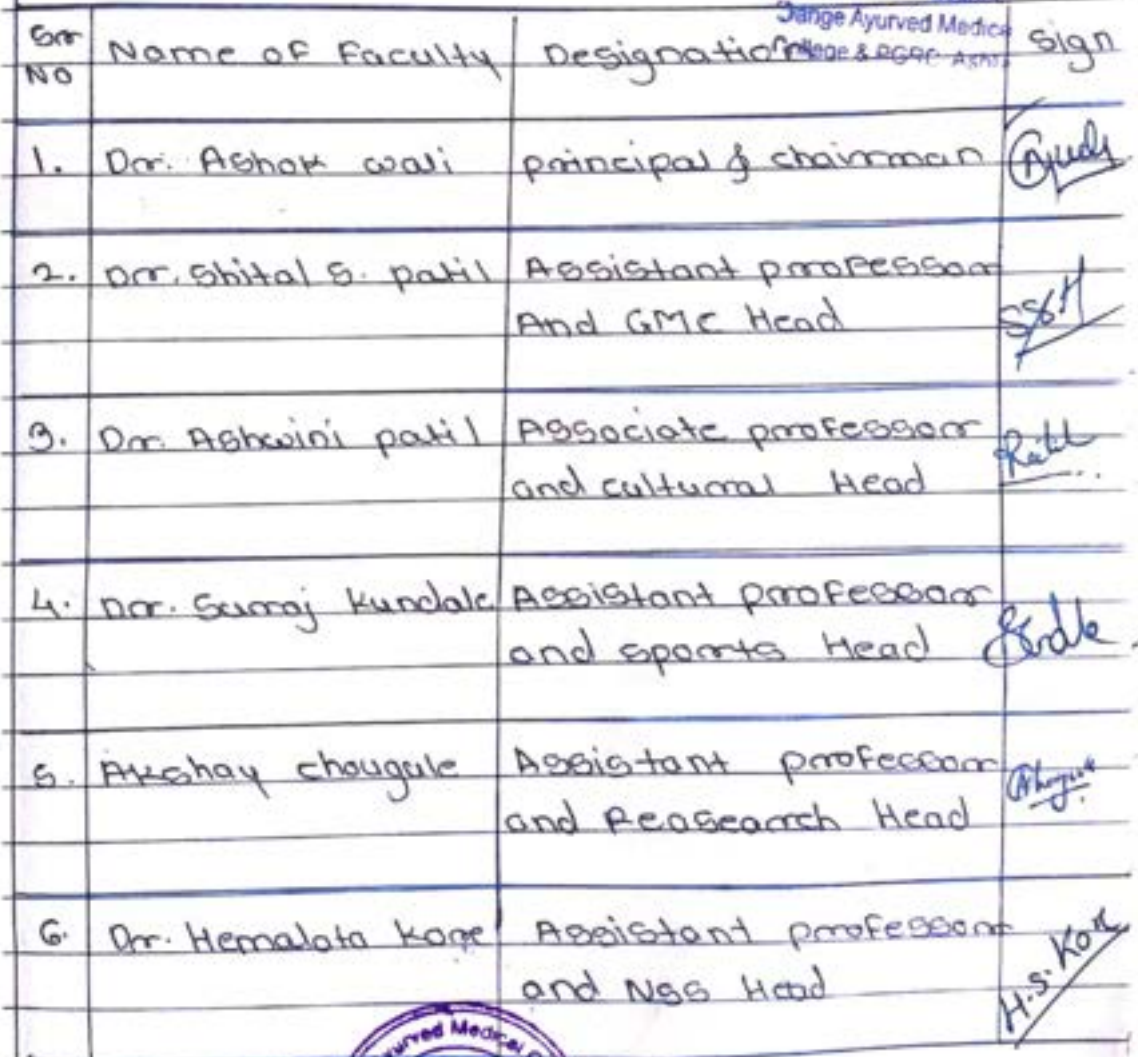 Dange Ayurved Medica
College & PGRC Ashta
Sr
No
Name of Faculty
Designation
Sign
1. Dr. Ashok wali principal & chairman
2. Dr. Shital S. patil Assistant professor
And GMC Head SSH
3. Dr. Ashwini patil Associate professor
and cultural Head Patil
4. Dr. Suraj Kundale Assistant Professor
and sports Head
5. Akshay chougule Assistant professor
and Reasearch Head
6. Dr. Hemalata Kore Assistant professor
and NSS Head H.S. Kore
Ayurved Medical